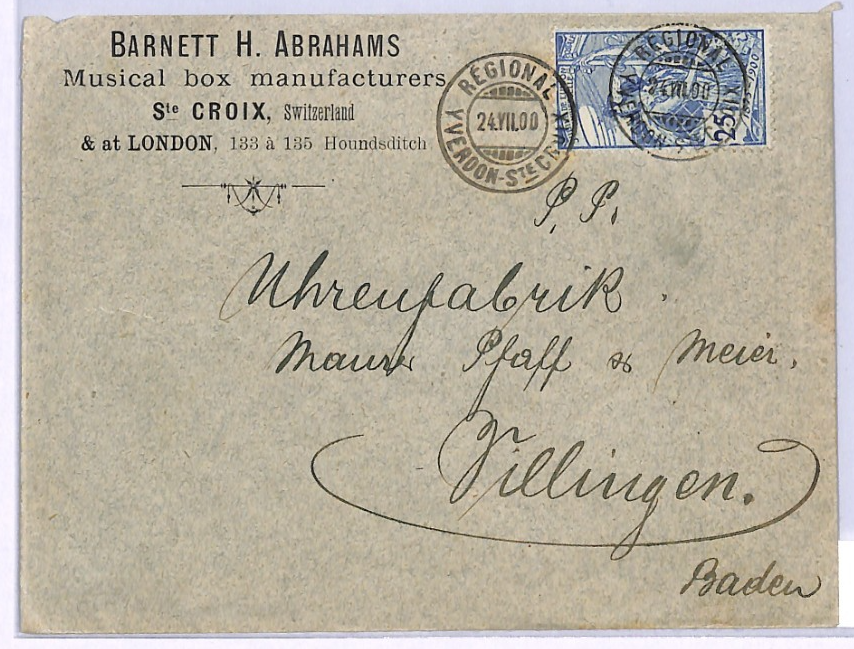 BARNETT H. ABRAHAMS
Musical box manufacturers
Ste CROIX, Switzerland
& at LONDON, 133 à 135 Houndsditch
RÉGIONAL
24.VII.00
YVERDON-STE CROIX
RÉGIONAL
24.VII.00
YVERDON-STE CROIX
25
1900
P. P.
Uhrenfabrik
Maurer Pfaff & Meier.
Villingen.
Baden